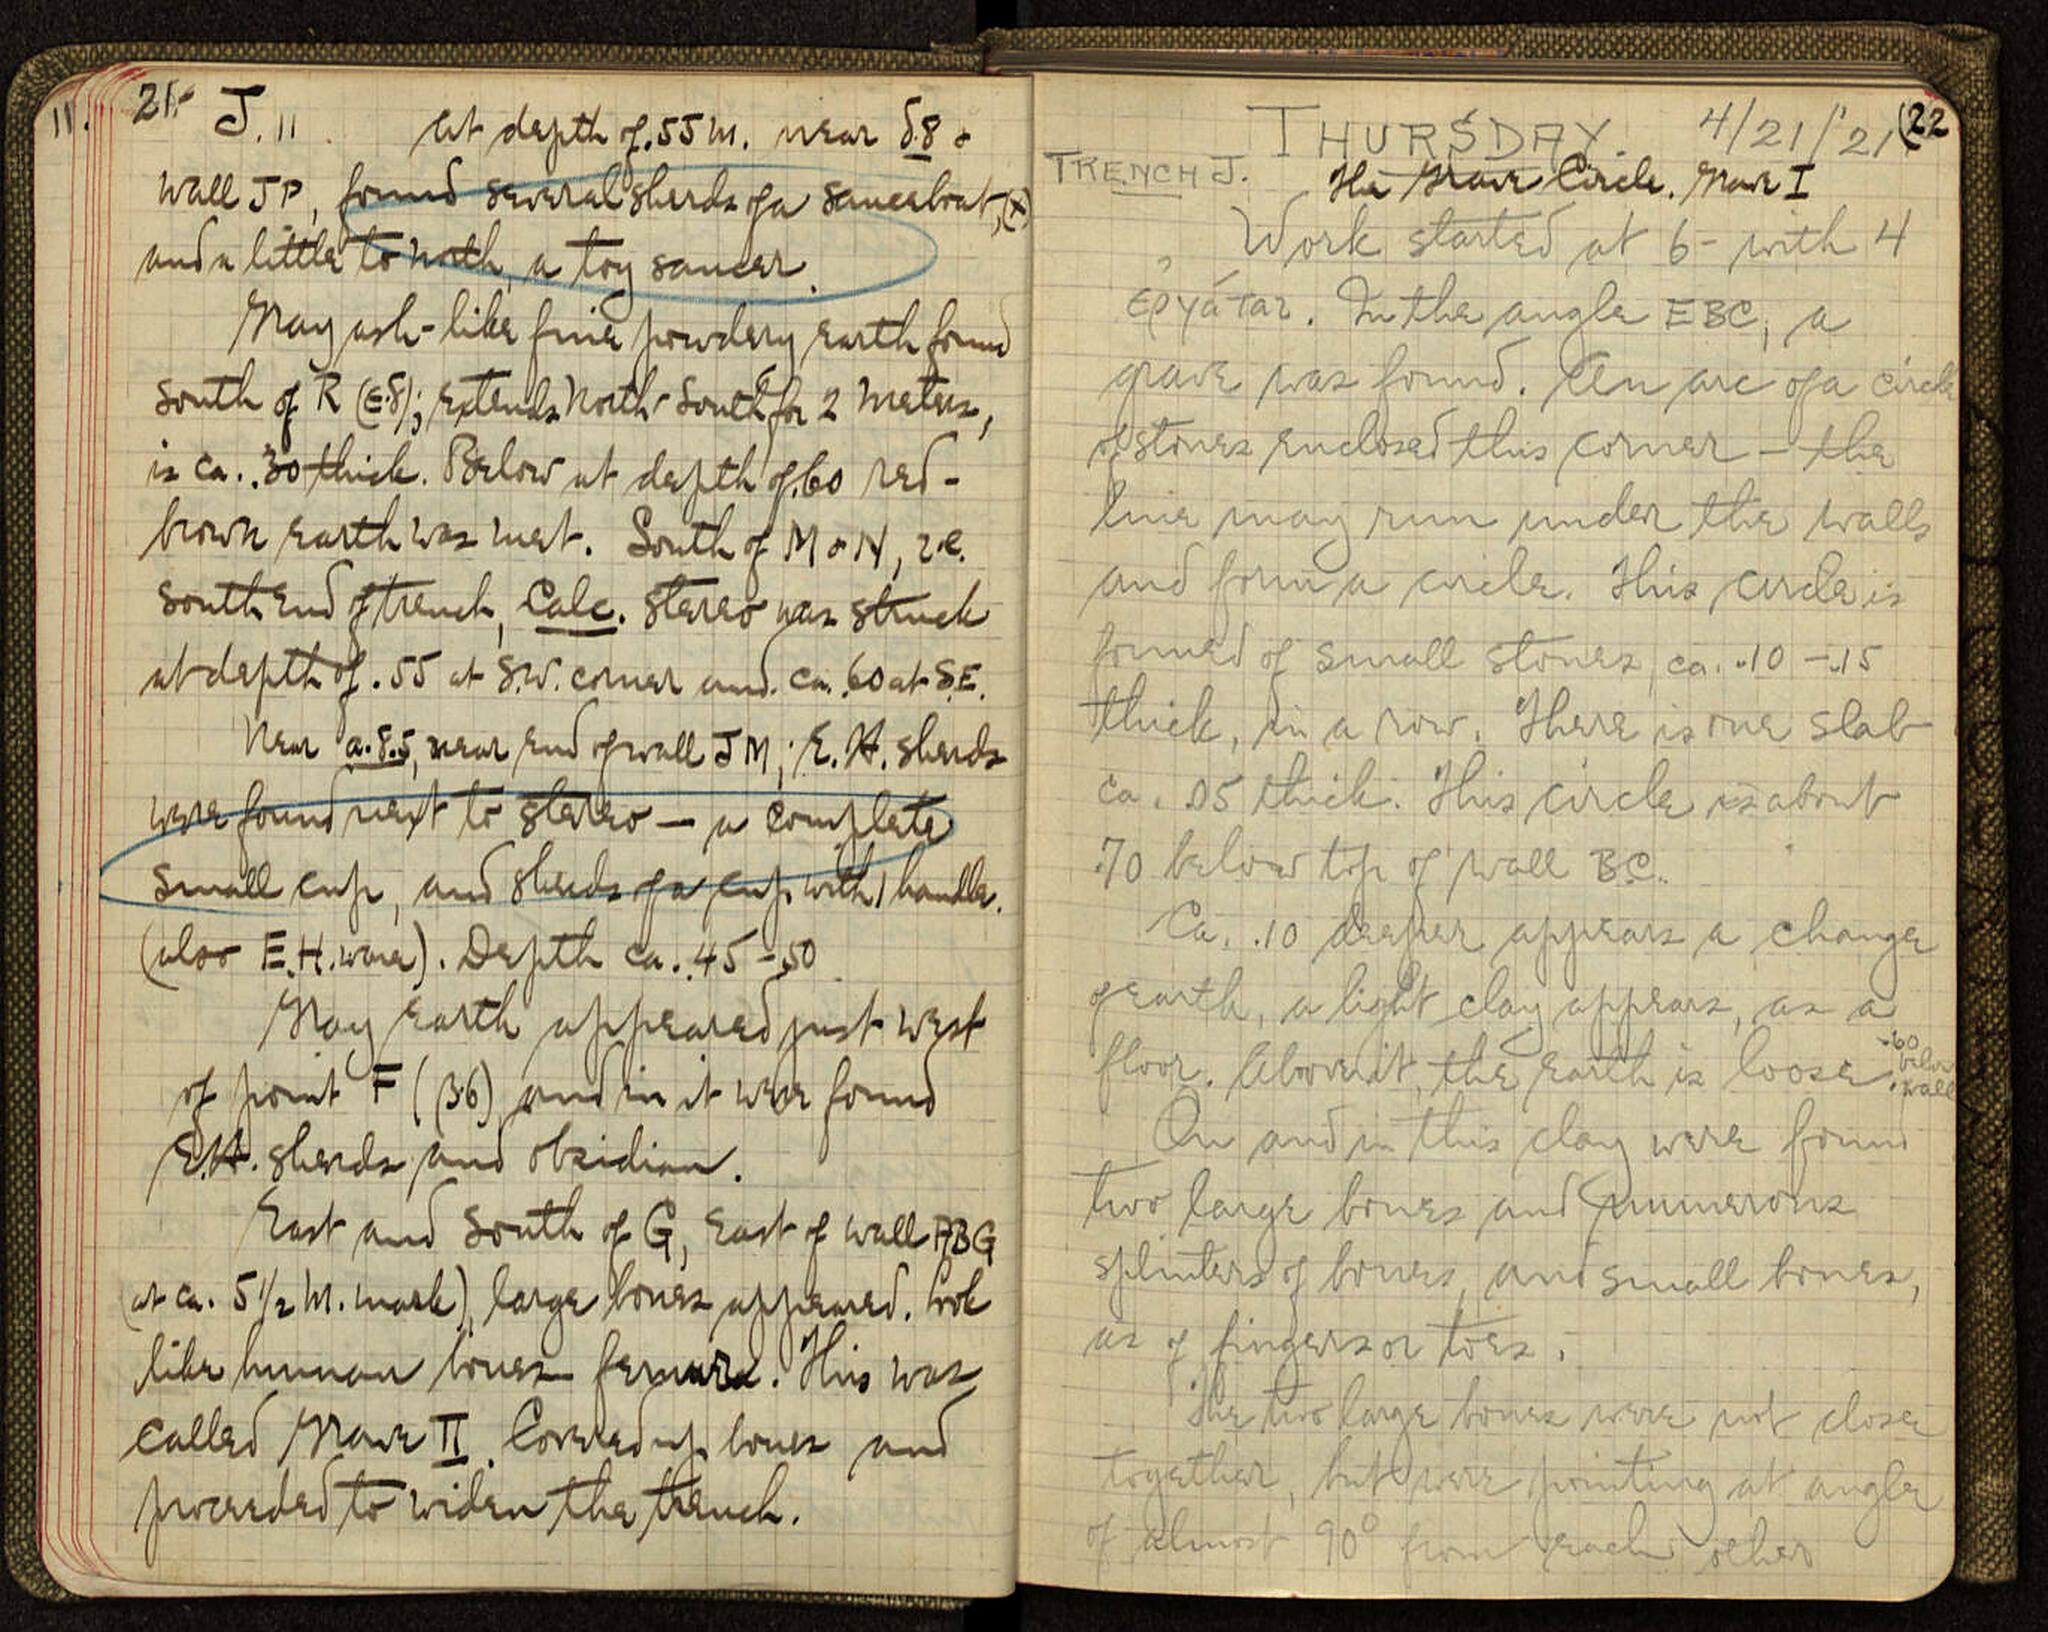 11. 21. J. 11 at depth of .55 m. near δ.8 &
wall J P, found several sherds of a sauceboat, (x)
and a little to north, a toy saucer.
Gray ash-like fine powdery earth found
south of R (ε.8); extends North South for 2 meters,
is ca. .30 thick. Below at depth of .60 red-
brown earth was met. South of M & N, i.e.
south end of trench, Calc. stereo was struck
at depth of .55 at S.W. corner and ca. .60 at S.E.
Near a.8.5, near end of wall J M, E.H. sherds
were found next to stereo — a complete
small cup, and sherds of a cup with 1 handle.
(also E.H. ware). Depth ca. .45-.50
Gray earth appeared just west
of point F (β.6) and in it were found
E.H. sherds and obsidian.
East and south of G, East of wall ABG
(at ca. 5 1/2 M. mark), large bones appeared. look
like human bones – femurs. This was
called Grave II. Covered up bones and
proceeded to widen the trench.
THURSDAY. 4/21/'21 (22
TRENCH J. The Grave Circle. Grave I
Work started at 6 – with 4
ἐργάται. In the angle EBC, a
grave was found. An arc of a circle
of stones enclosed this corner – the
line may run under the walls
and form a circle. This circle is
formed of small stones, ca. .10 – .15
thick, in a row. There is one slab
ca. .05 thick. This circle is about
.70 below top of wall BC.
Ca. .10 deeper appears a change
of earth, a light clay appears, as a
floor. Above it, the earth is loose. .60 below wall
On and in this clay were found
two large bones and numerous
splinters of bones, and small bones,
as of fingers or toes.
The two large bones were not close
together, but were pointing at angle
of almost 90° from each other